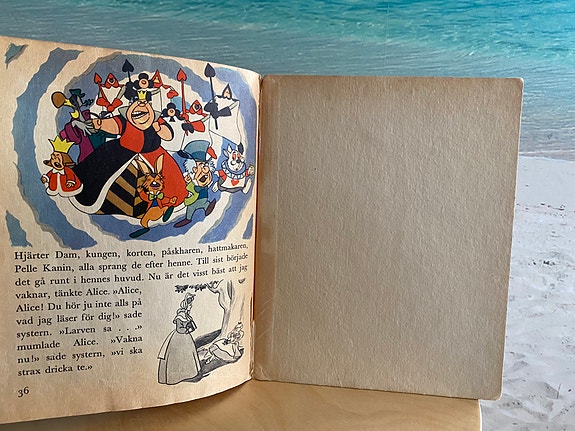 Hjärter Dam, kungen, korten, påskharen, hattmakaren,
Pelle Kanin, alla sprang de efter henne. Till sist började
det gå runt i hennes huvud. Nu är det visst bäst att jag
vaknar, tänkte Alice. »Alice,
Alice! Du hör ju inte alls på
vad jag läser för dig!» sade
systern. »Larven sa . . .»
mumlade Alice. »Vakna
nu!» sade systern, »vi ska
strax dricka te.»
36